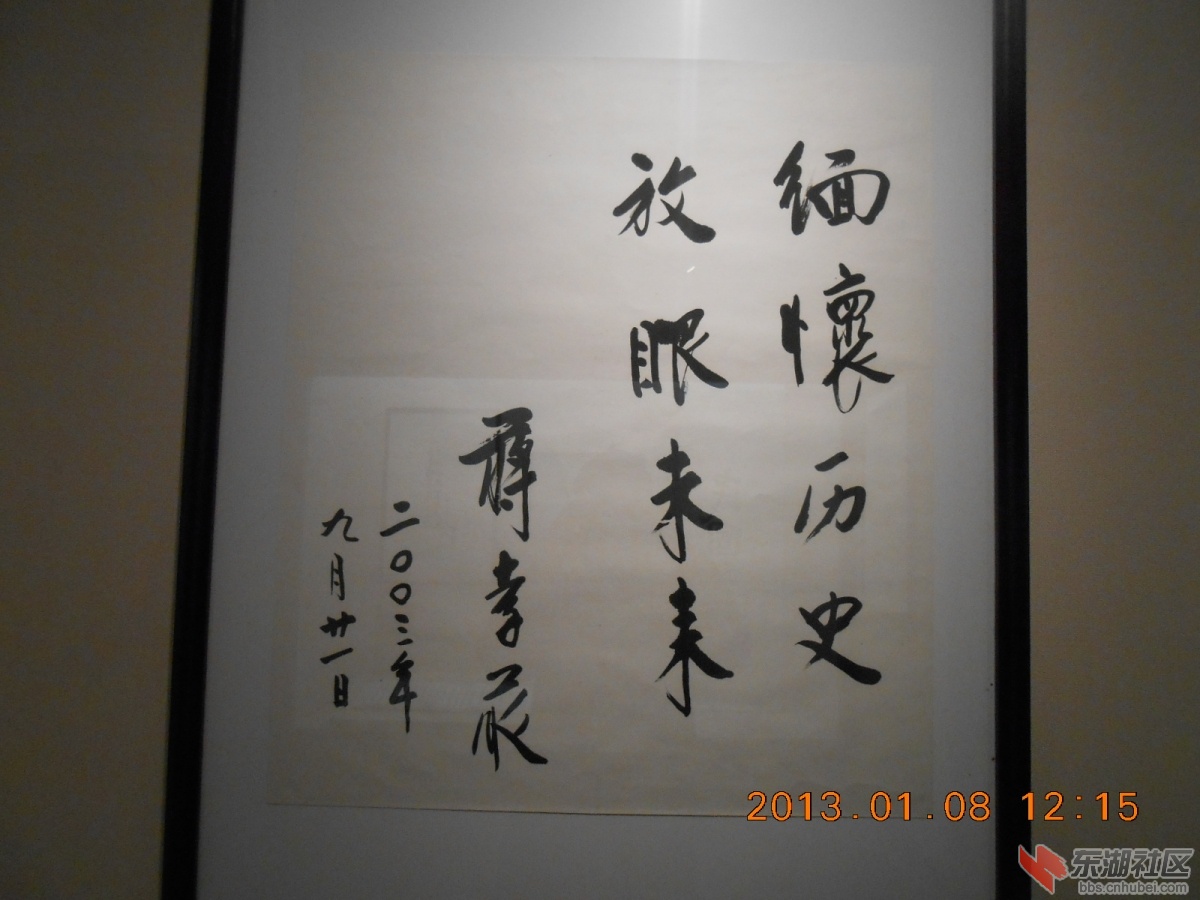 缅懷历史
放眼未来
蒋孝严
二〇〇三年
九月廿一日
2013.01.08 12:15
东湖社区
bbs.cnhubei.com